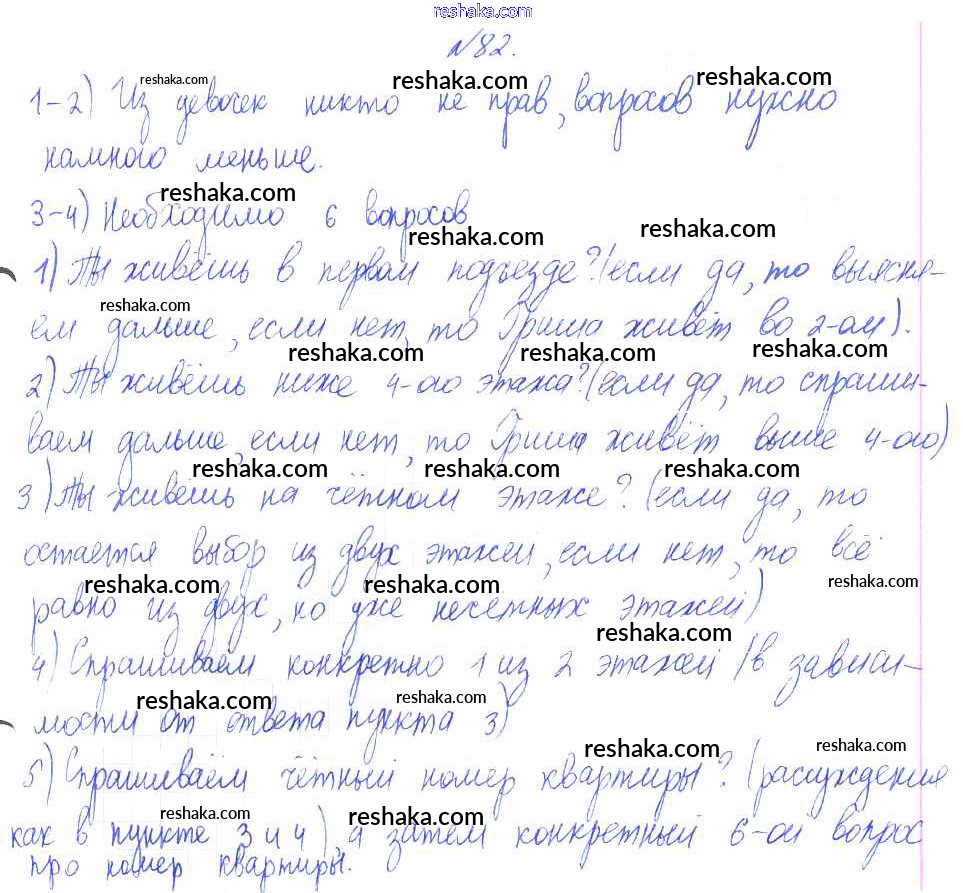 reshaka.com
№82.
reshaka.com reshaka.com reshaka.com
1-2) Из девочек никто не прав, вопросов нужно
намного меньше.
reshaka.com
3-4) Необходимо 6 вопросов
reshaka.com reshaka.com
1) Ты живёшь в первом подъезде? (если да, то выясня-
reshaka.com
ем дальше, если нет, то Гриша живёт во 2-ом).
reshaka.com reshaka.com reshaka.com
2) Ты живёшь ниже 4-ого этажа? (если да, то спраши-
ваем дальше, если нет, то Гриша живёт выше 4-ого)
reshaka.com reshaka.com reshaka.com
3) Ты живёшь на чётном этаже? (если да, то
остается выбор из двух этажей, если нет, то всё
reshaka.com reshaka.com reshaka.com
равно из двух, но уже несетных этажей)
reshaka.com
4) Спрашиваем конкретно 1 из 2 этажей (в зависи-
reshaka.com reshaka.com
мости от ответа пункта 3)
reshaka.com reshaka.com
5) Спрашиваем чётный номер квартиры? (рассуждения
reshaka.com reshaka.com
как в пункте 3 и 4) а затем конкретный 6-ой вопрос
про номер квартиры.